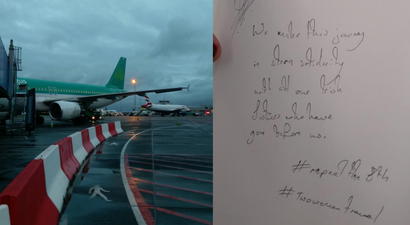 We make this journey
in strong solidarity
with all our Irish
Sisters who have
gone before us.
#repeal the 8th
#twowomentravel